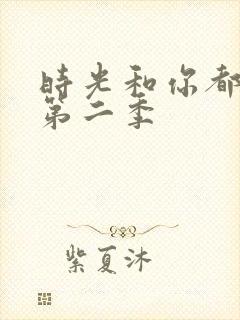 時光和你都
第二季
紫夏沐